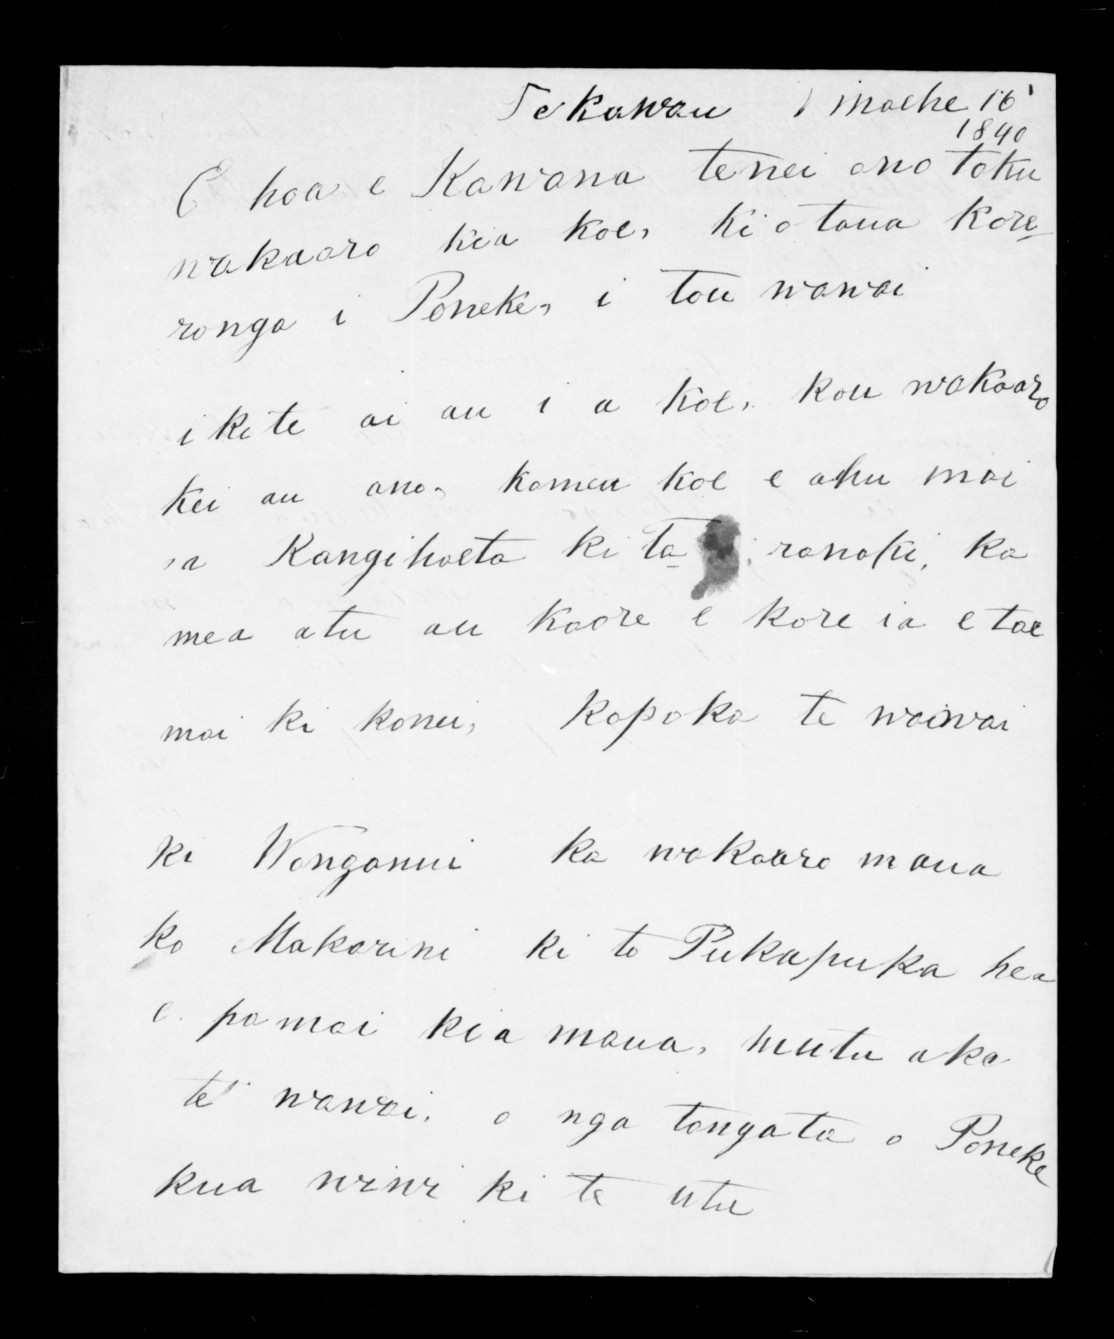 Te kawau maehe 16
1840
E hoa e Kawana tenei ano toku
wakaaro kia koe, ki o taua kore-
ronga i Poneke, i tou wawai
i kite ai au i a koe, kou wakaaro
kei au ano, ka mea koe e ahu mai
a Rangihaeta ki ta ranaki, ka
mea atu au kaore e kore ia e tae
mai ki konei, ka poka te waiwai
ki Wonganui ka wakaaro maua
ko Makarini ki te Pukapuka hea
e pa mai kia maua, hutu aka
te wawai, o nga tangata o Poneke
kua wiwi ki te utu